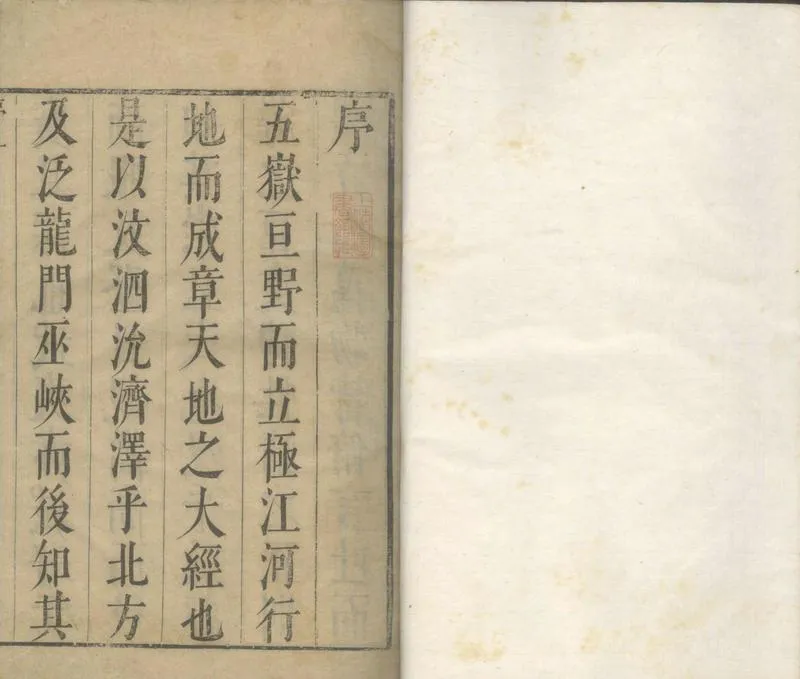 序
五嶽亘野而立極江河行
地而成章天地之大經也
是以汶泗沇濟澤乎北方
及泛龍門巫峽而後知其